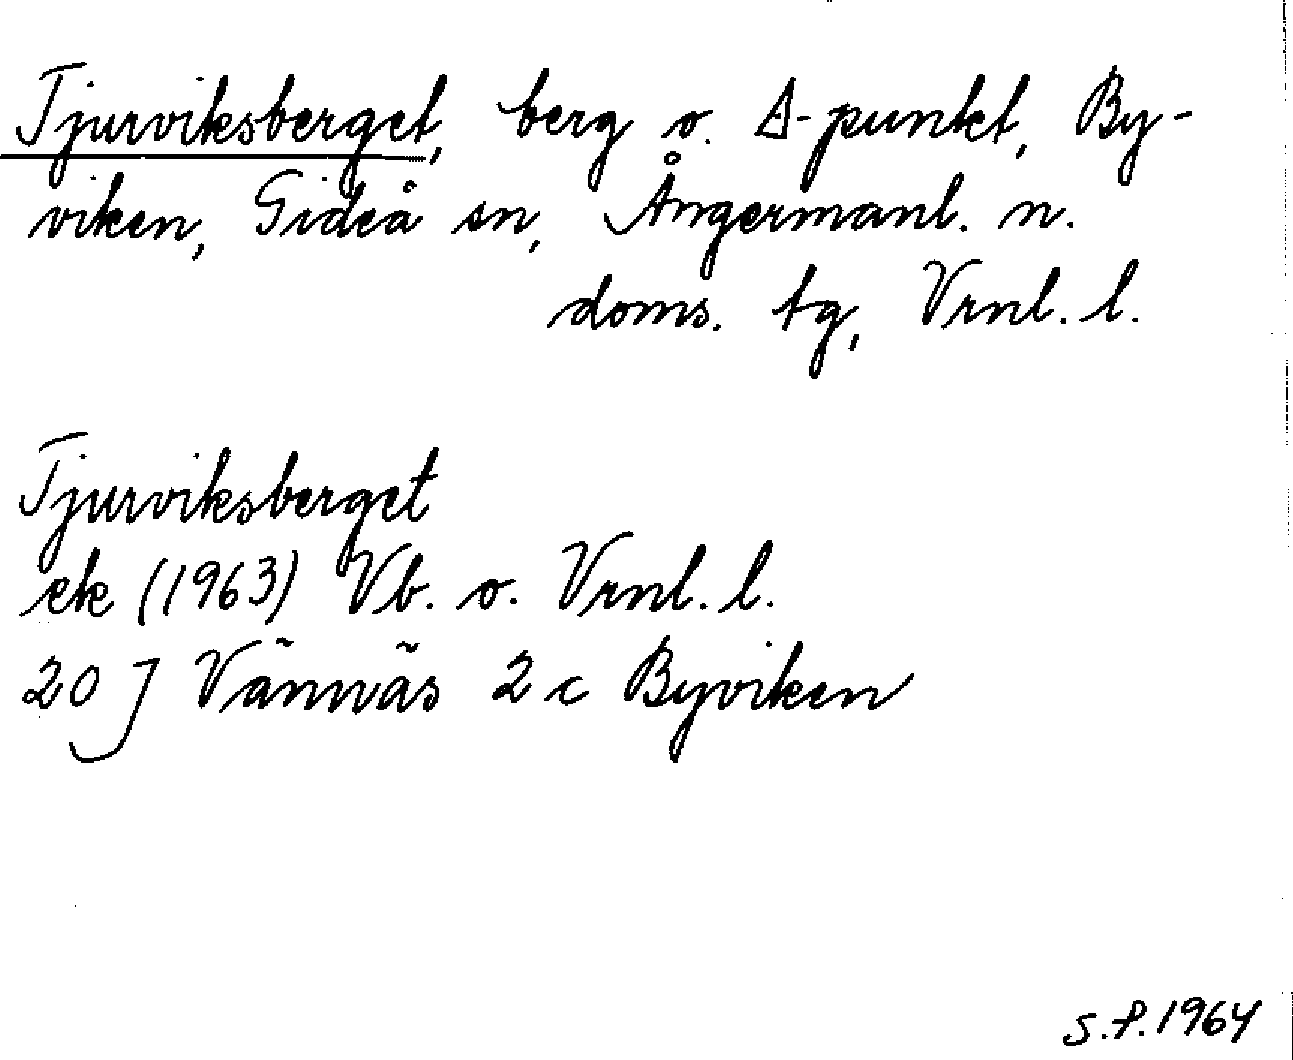 Tjurviksberget, berg o. Δ-punkt, By-
viken, Gideå sn, Ångermanl. n.
doms. tg, Vrnl. l.
Tjurviksberget
ek (1963) Vb. o. Vrnl. l.
20 J Vännäs 2 c Byviken
S.P. 1964